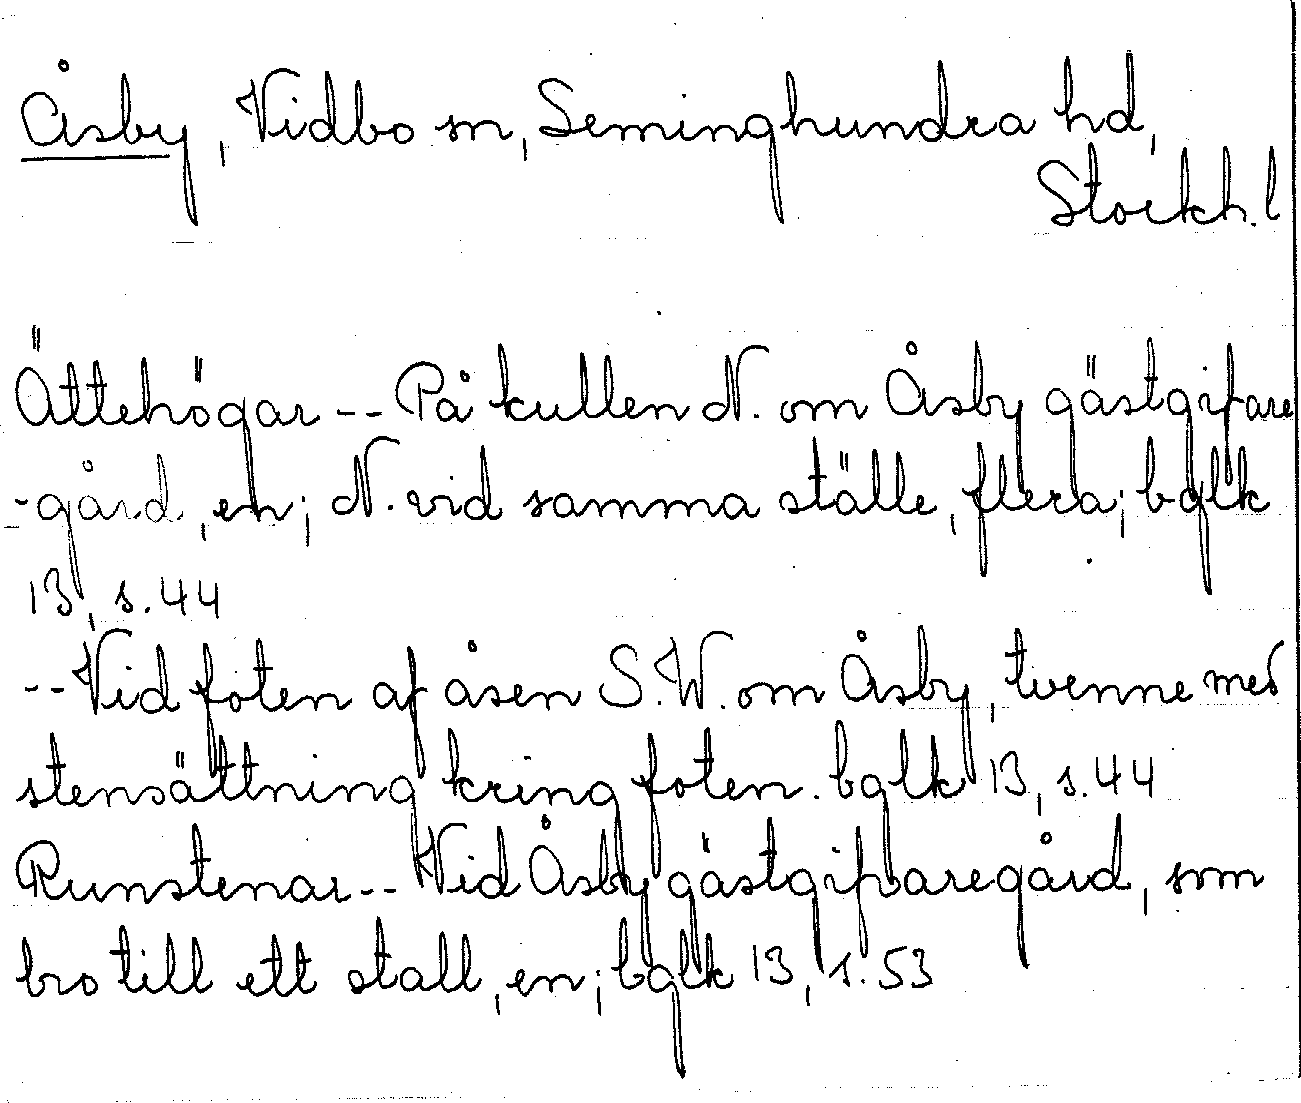 Åsby, Vidbo sn, Seminghundra hd,
Stockh. l
Ättehögar -- På kullen N. om Åsby gästgifvare
-gård, en; N. vid samma ställe, flera; bglk
13, s. 44
-- Vid foten af åsen S.W. om Åsby, tvenne med
stensättning kring foten. bglk 13, s. 44
Runstenar -- Vid Åsby gästgifvaregård, som
bro till ett stall, en; bglk 13, s. 53